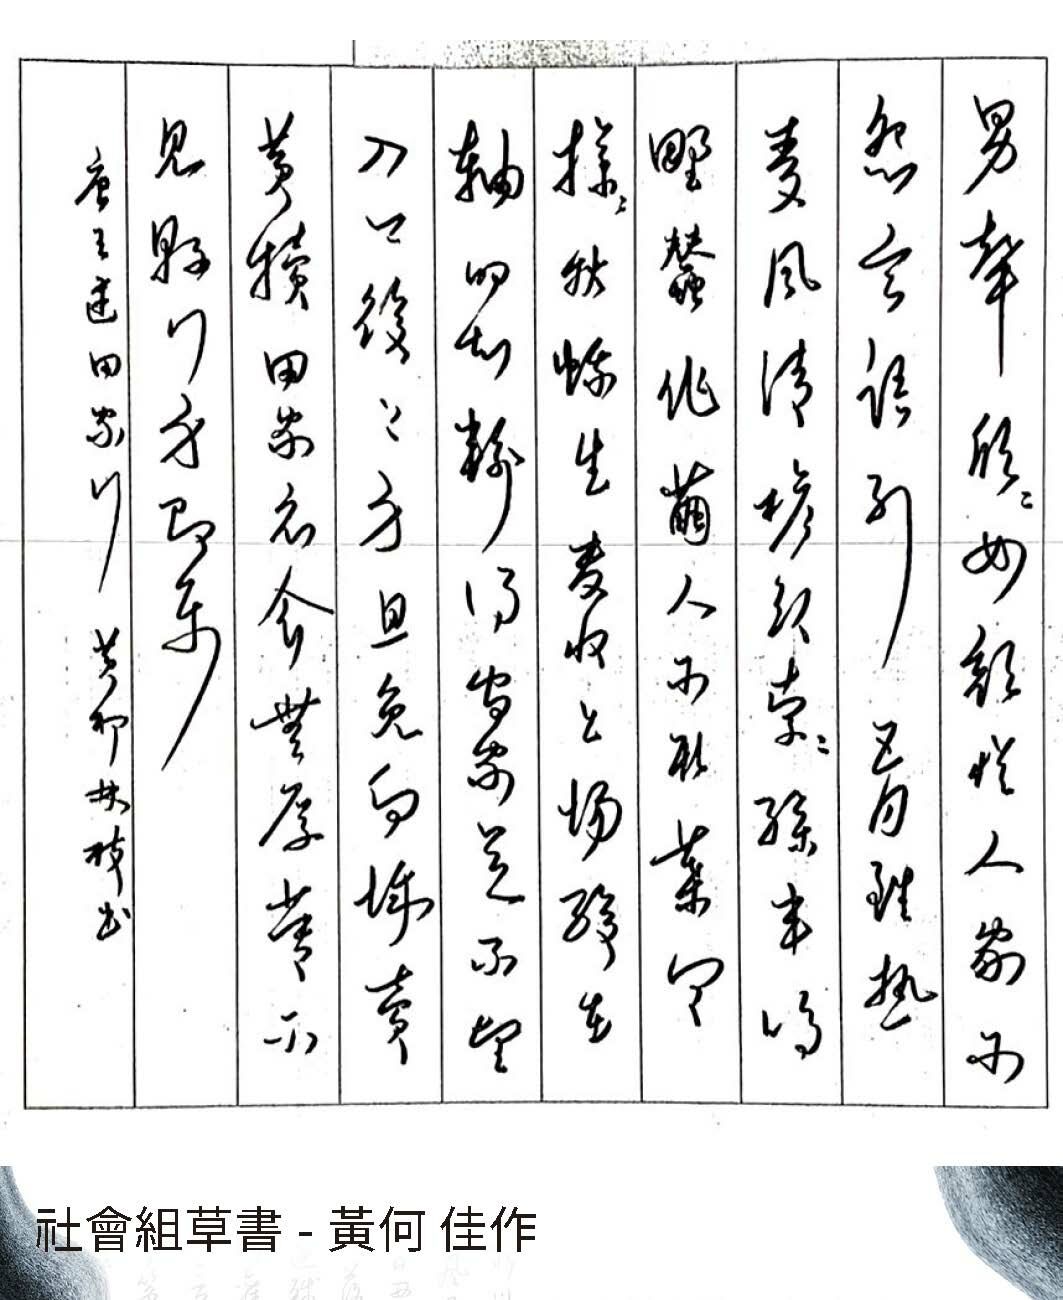 男聲欣欣女顏悅人家不
怨言語別五月雖熱
麥風清檐頭索索繰車鳴
野蠶作繭人不取葉間
撲撲秋蛾生麥收上場絹在
軸的知輸得官家足不望
入口復上身且免向城賣
黃犢田家衣食無厚薄不
見縣門身即樂
唐王建田家行
社會組草書 - 黃何 佳作